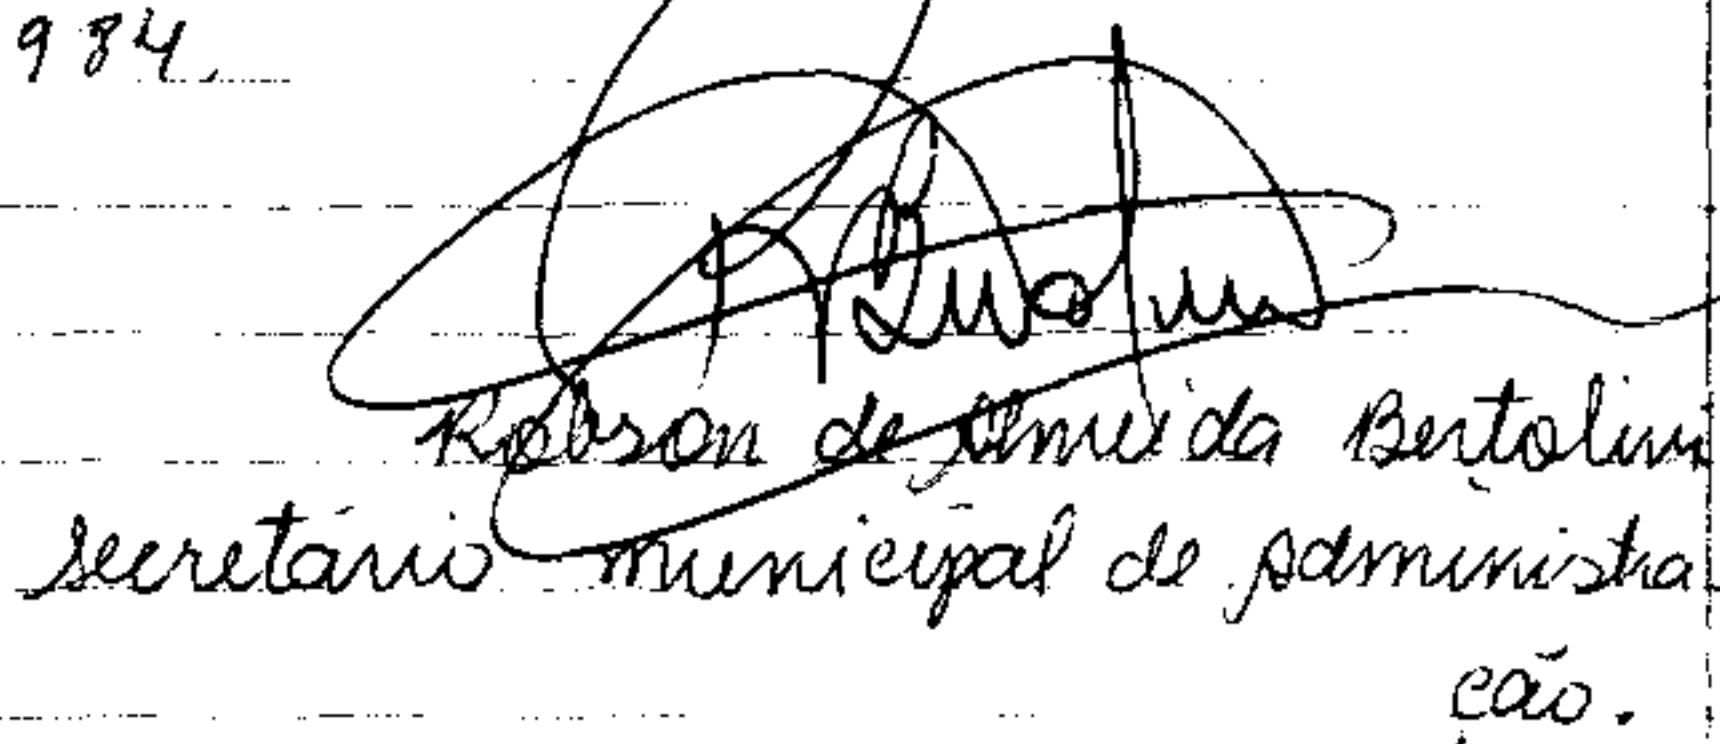 984.
Robson de Almeida Bertolini
Secretário municipal de Administra
ção.